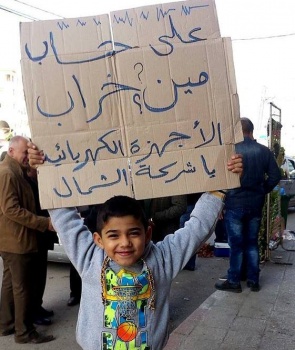 على حساب
مين؟ خراب
الأجهزة الكهربائية
يا شركة الشمال